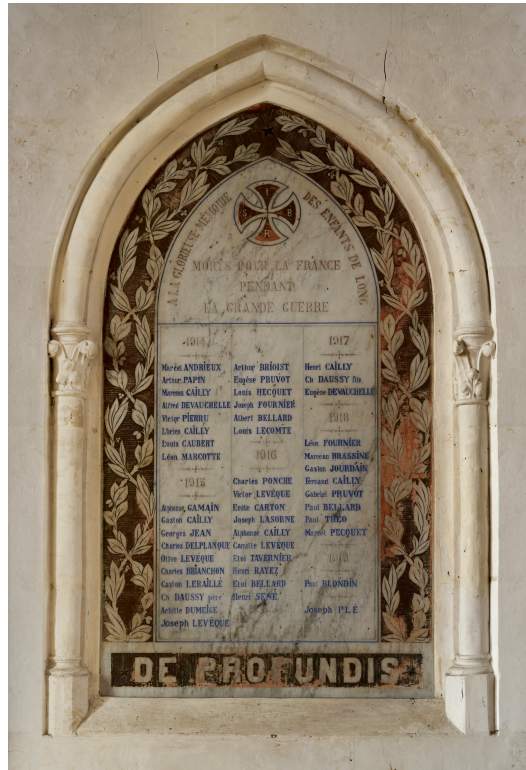 I
S B
R
A LA GLORIEUSE MÉMOIRE DES ENFANTS DE LONG
MORTS POUR LA FRANCE
PENDANT
LA GRANDE GUERRE
1914
Marcel ANDRIEUX
Arthur PAPIN
Marceau CAÏLLY
Alfred DEVAUCHELLE
Victor PIERRU
Lucien CAÏLLY
Louis CAUBERT
Léon MARCOTTE
1915
Alphonse GAMAIN
Gaston CAÏLLY
Georges JEAN
Charles DELPLANQUE
Olive LEVÉQUE
Charles BRIANCHON
Gaston LERAILLÉ
Ch DAUSSY père
Achille DUMEIGE
Joseph LEVÉQUE
Arthur BRIOIST
Eugène PRUVOT
Louis HECQUET
Joseph FOURNIER
Albert BELLARD
Louis LECOMTE
1916
Charles PONCHE
Victor LEVÉQUE
Emile CARTON
Joseph LASORNE
Alphonse CAÏLLY
Camille LEVÉQUE
Eloi TAVERNIER
Henri RAYEZ
Eloi BELLARD
Henri SENÉ
1917
Henri CAÏLLY
Ch DAUSSY fils
Eugène DEVAUCHELLE
1918
Léon FOURNIER
Marceau BRASSINE
Gaston JOURDAIN
Fernand CAÏLLY
Gabriel PRUVOT
Paul BELLARD
Paul THÉO
Marcel PECQUET
1919
Paul BLONDIN
Joseph PLÉ
DE PROFUNDIS